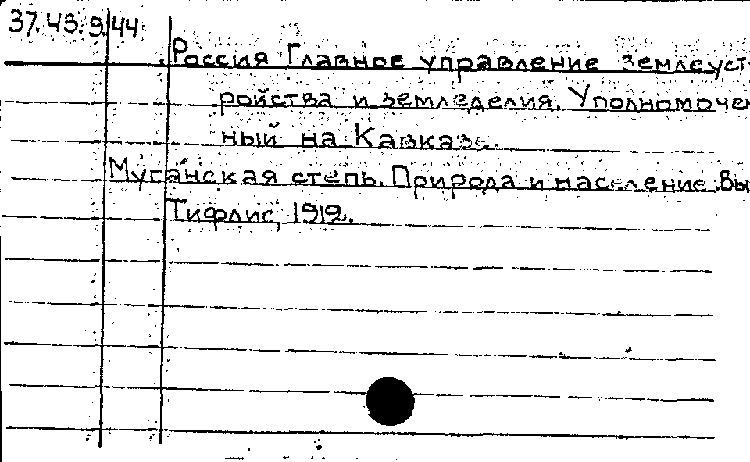 37.43.9.44
Россия Главное управление землеуст
ройства и земледелия. Уполномочен
ный на Кавказе.
Муганская степь. Природа и население. Вы
Тифлис, 1912.